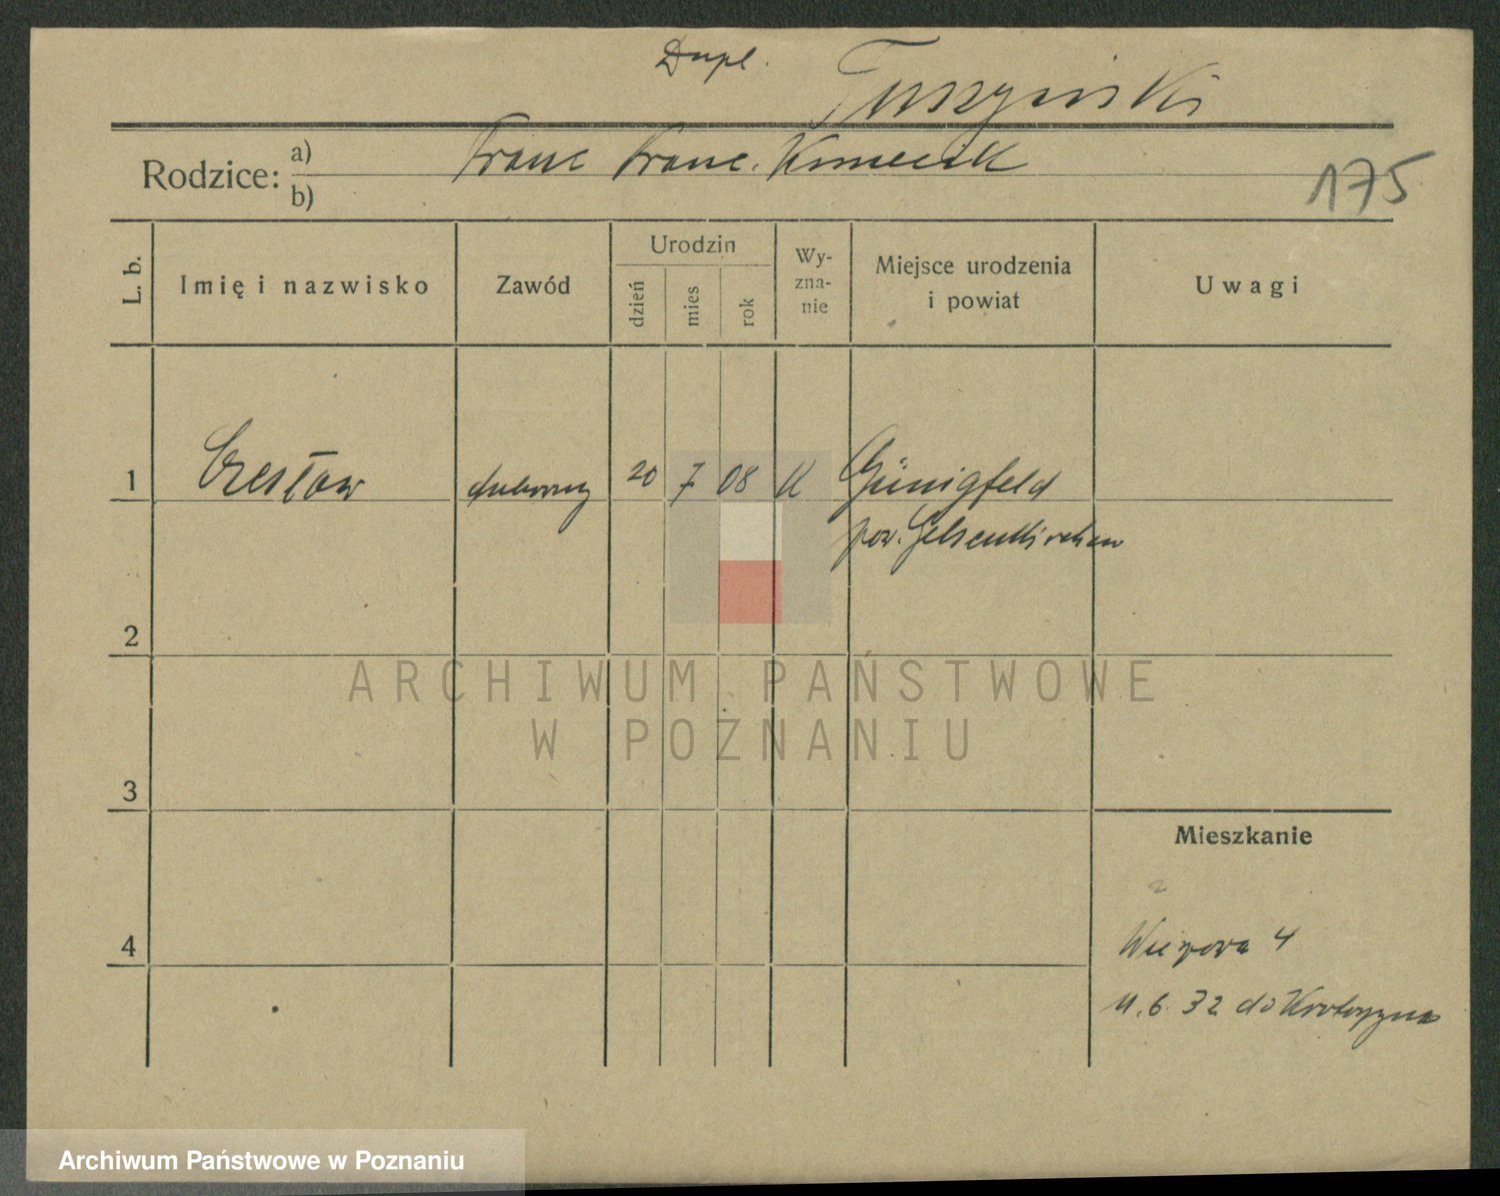 Dupl. Tuszyński
Rodzice: a) Franc Franc. Kmiecik
b)
175
L. b. Imię i nazwisko Zawód Urodzin dzień mies rok Wy-zna-nie Miejsce urodzenia i powiat Uwagi
1 Czesław 20 7 08 K Günigfeld
pow. Gelsenkirchen
2
3
Mieszkanie
4
4
11.6.32 do Krotoszyna
ARCHIWUM PAŃSTWOWE
W POZNANIU
Archiwum Państwowe w Poznaniu